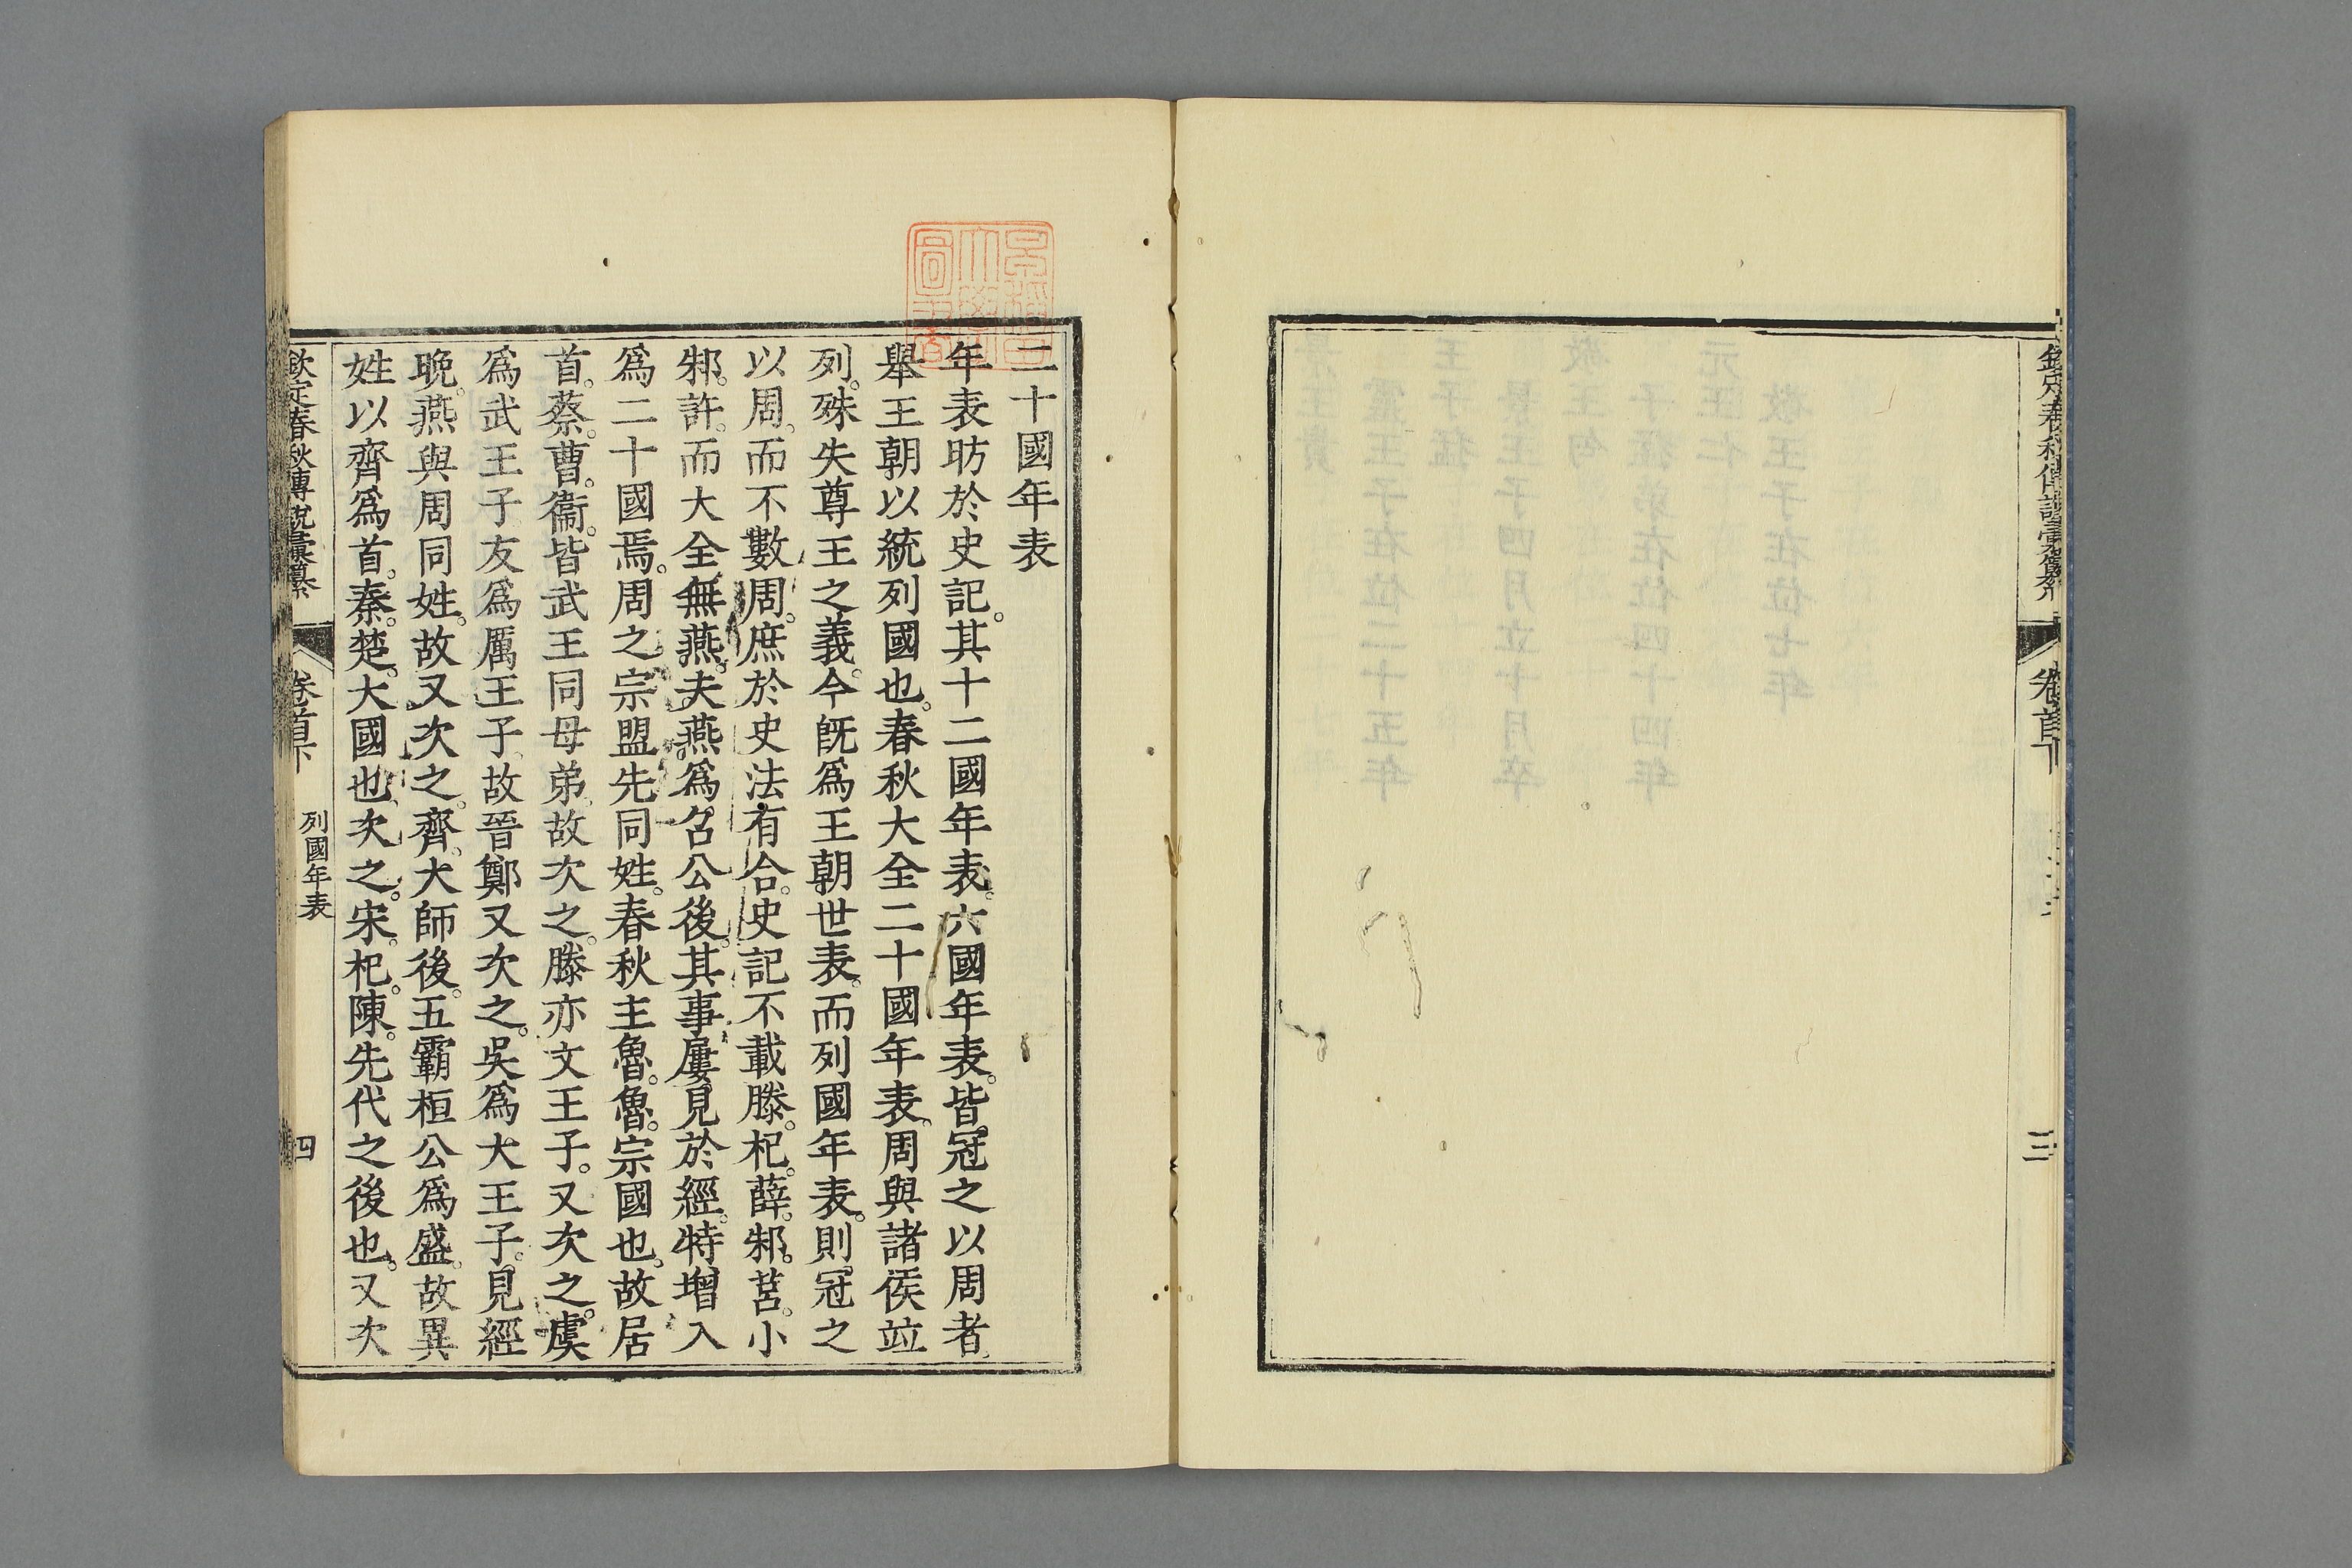 欽定春秋傳說彙纂
卷首下
三
二十國年表
年表昉於史記。其十二國年表。六國年表。皆冠之以周者。
舉王朝以統列國也。春秋大全二十國年表。周與諸侯竝
列。殊失尊王之義。今旣爲王朝世表。而列國年表。則冠之
以周。而不數周。庶於史法有合。史記不載滕。杞。薛。邾。莒。小
邾。許。而大全無燕。夫燕。爲召公後。其事屢見於經。特增入
爲二十國焉。周之宗盟先同姓。春秋主魯。魯。宗國也。故居
首。蔡。曹。衞。皆武王同母弟。故次之。滕亦文王子。又次之。虞
爲武王子。友爲厲王子。故晉鄭又次之。吳爲大王子。見經
晚。燕與周同姓。故又次之。齊。大師後。五霸桓公爲盛。故異
姓以齊爲首。秦。楚。大國也。次之。宋。杞。陳。先代之後也。又次
欽定春秋傳說彙纂
卷首下
列國年表
四